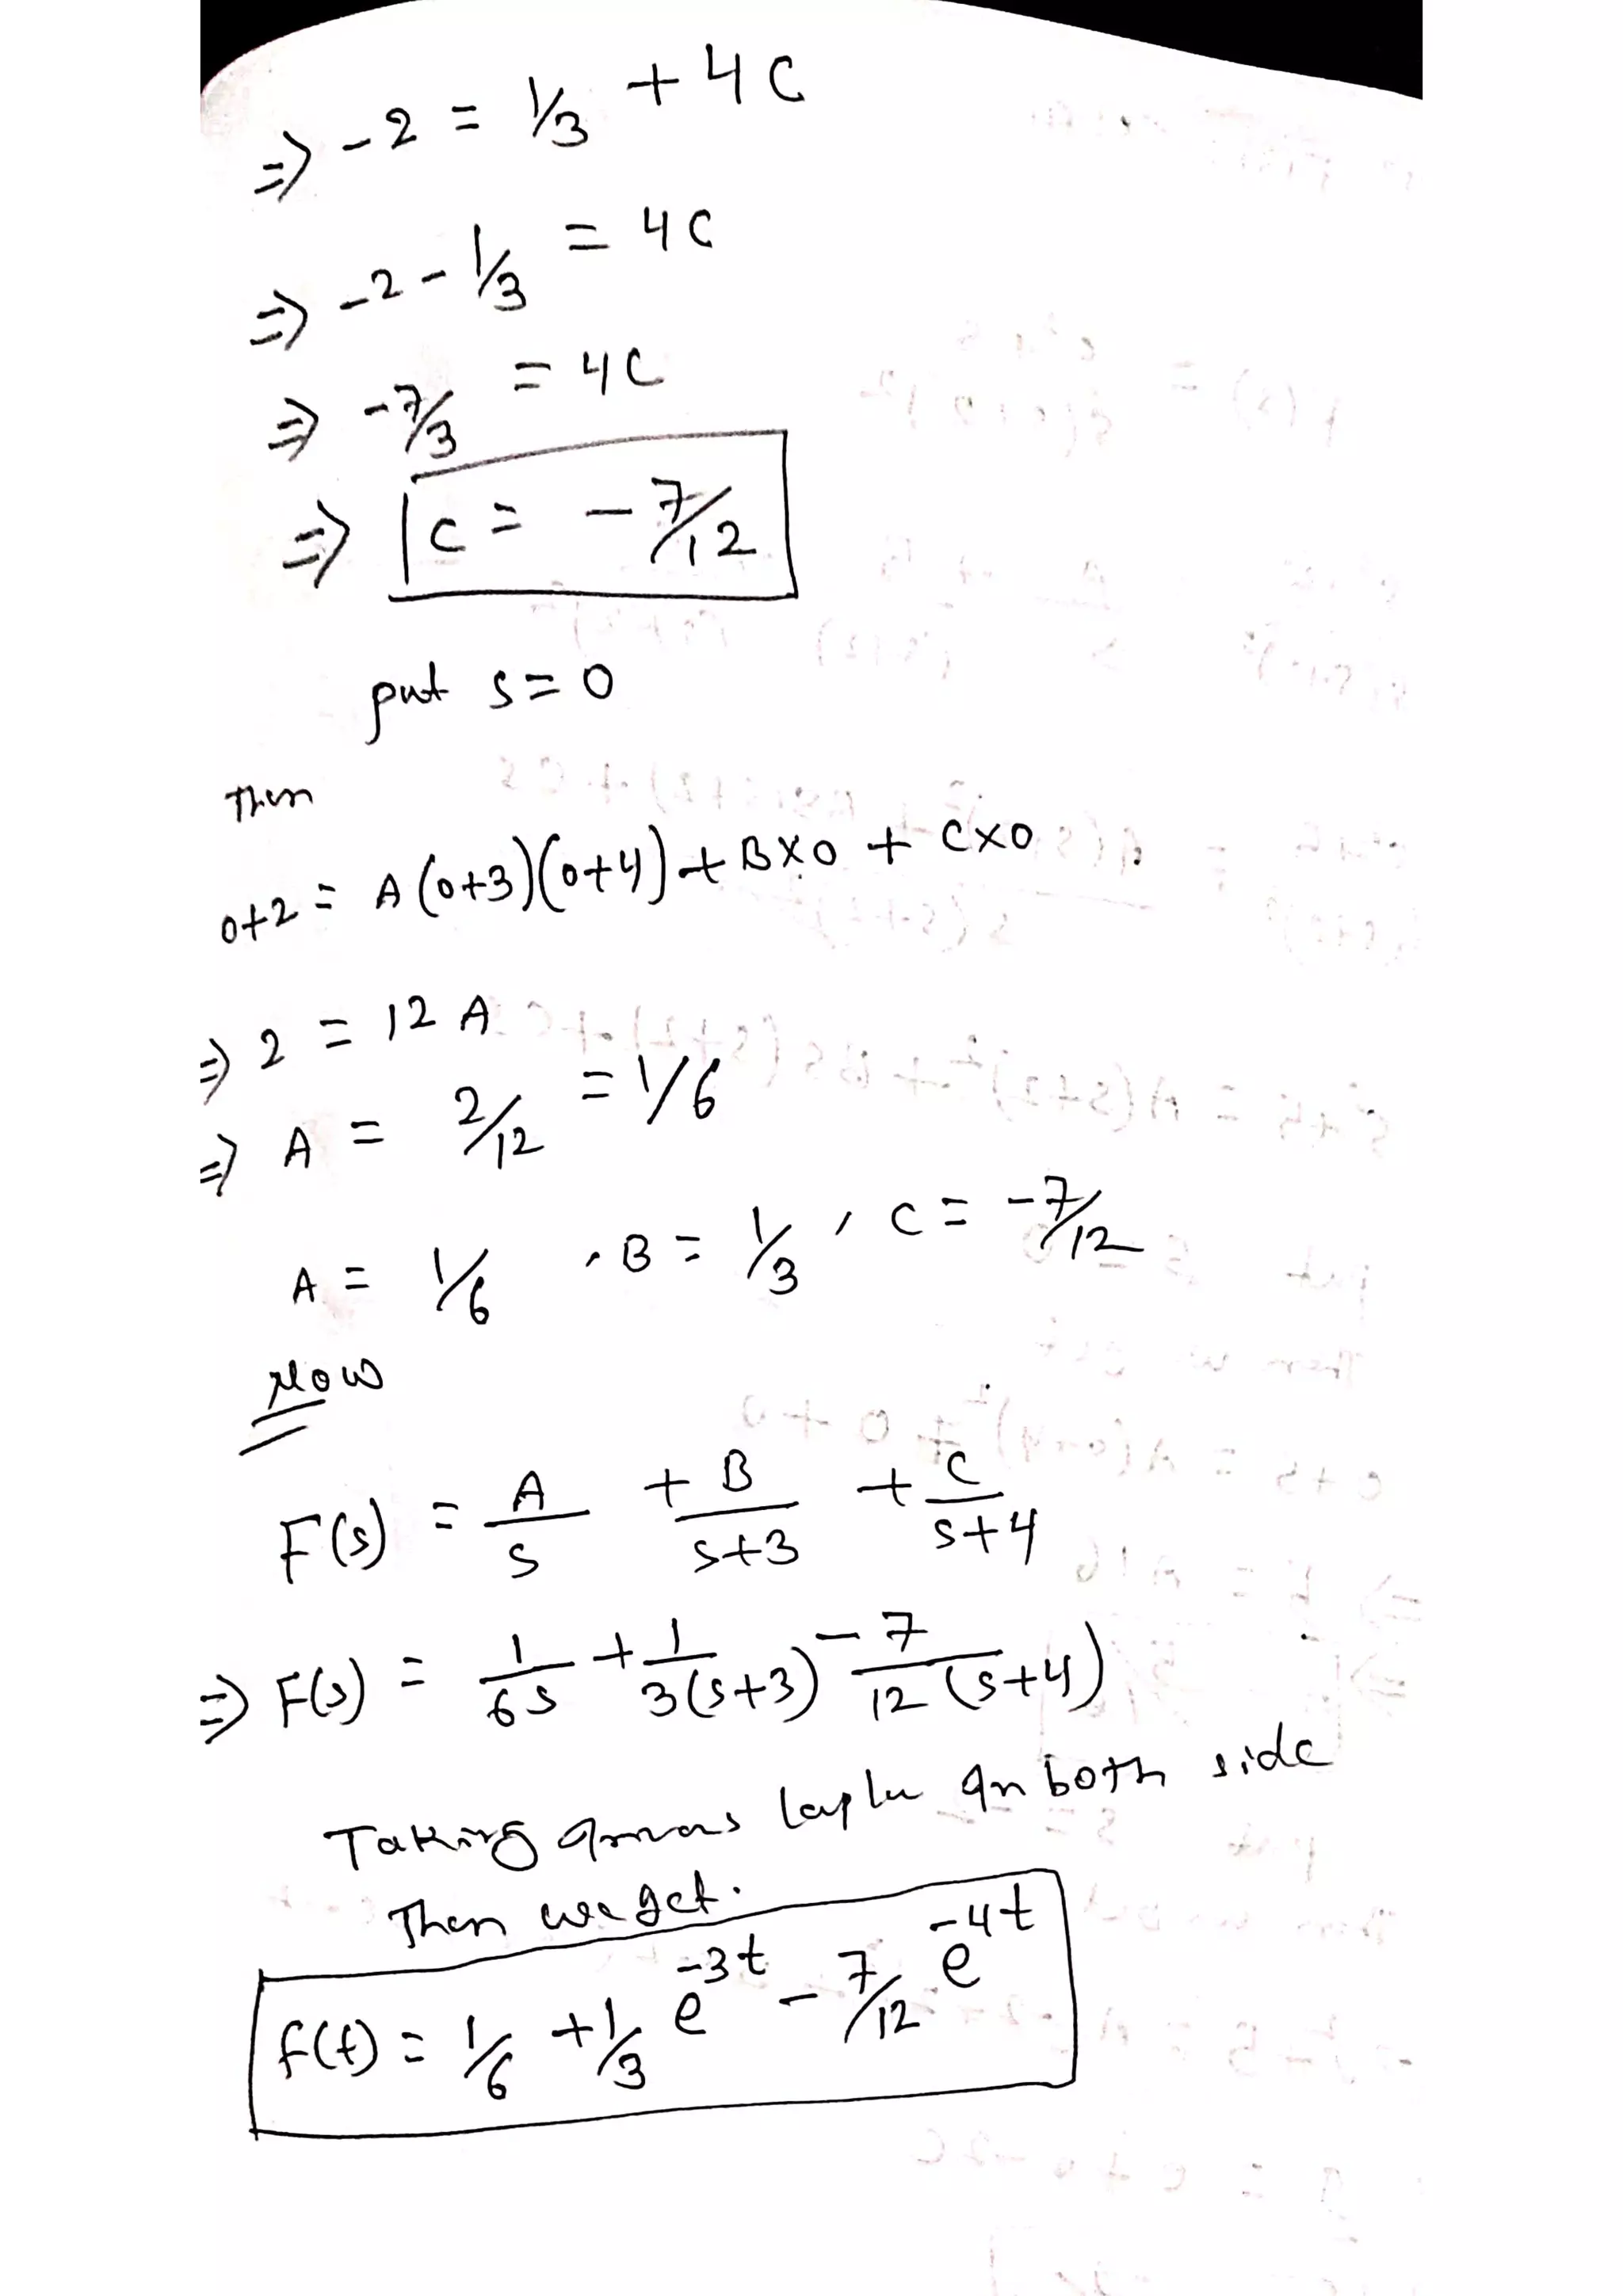 ⇒ -2 = 1/3 + 4C
⇒ -2 - 1/3 = 4C
⇒ -7/3 = 4C
⇒ C = -7/12
put s=0
Then
0+2 = A(0+3)(0+4) + B×0 + C×0
⇒ 2 = 12 A
⇒ A = 2/12 = 1/6
A = 1/6 , B = 1/3 , C = -7/12
Now
F(s) = A/s + B/s+3 + C/s+4
⇒ F(s) = 1/6s + 1/3(s+3) - 7/12(s+4)
Taking both side
Then we get.
f(t) = 1/6 + 1/3 e^-3t - 7/12 e^-4t